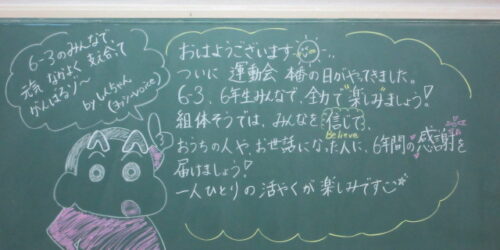 6-3のみんなで、
元気 なかよく 支え合って
がんばるゾ〜
by しんちゃん
おはようございます
ついに 運動会 本番の日がやってきました。
6-3、6年生みんなで、全力で"楽しみ"ましょう!
組体そうでは、みんなを信じて、
believe
おうちの人や、お世話になった人に、6年間の感謝を
届けましょう!
一人ひとりの活やくが楽しみです